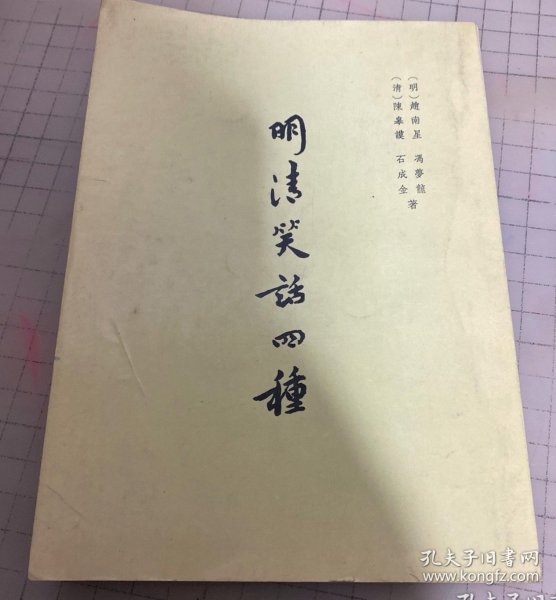 (明)趙南星 馮夢龍
(清)陳皋謨 石成金 著
明清笑話四種
孔夫子旧书网
www.kongfz.com
孔夫子旧书